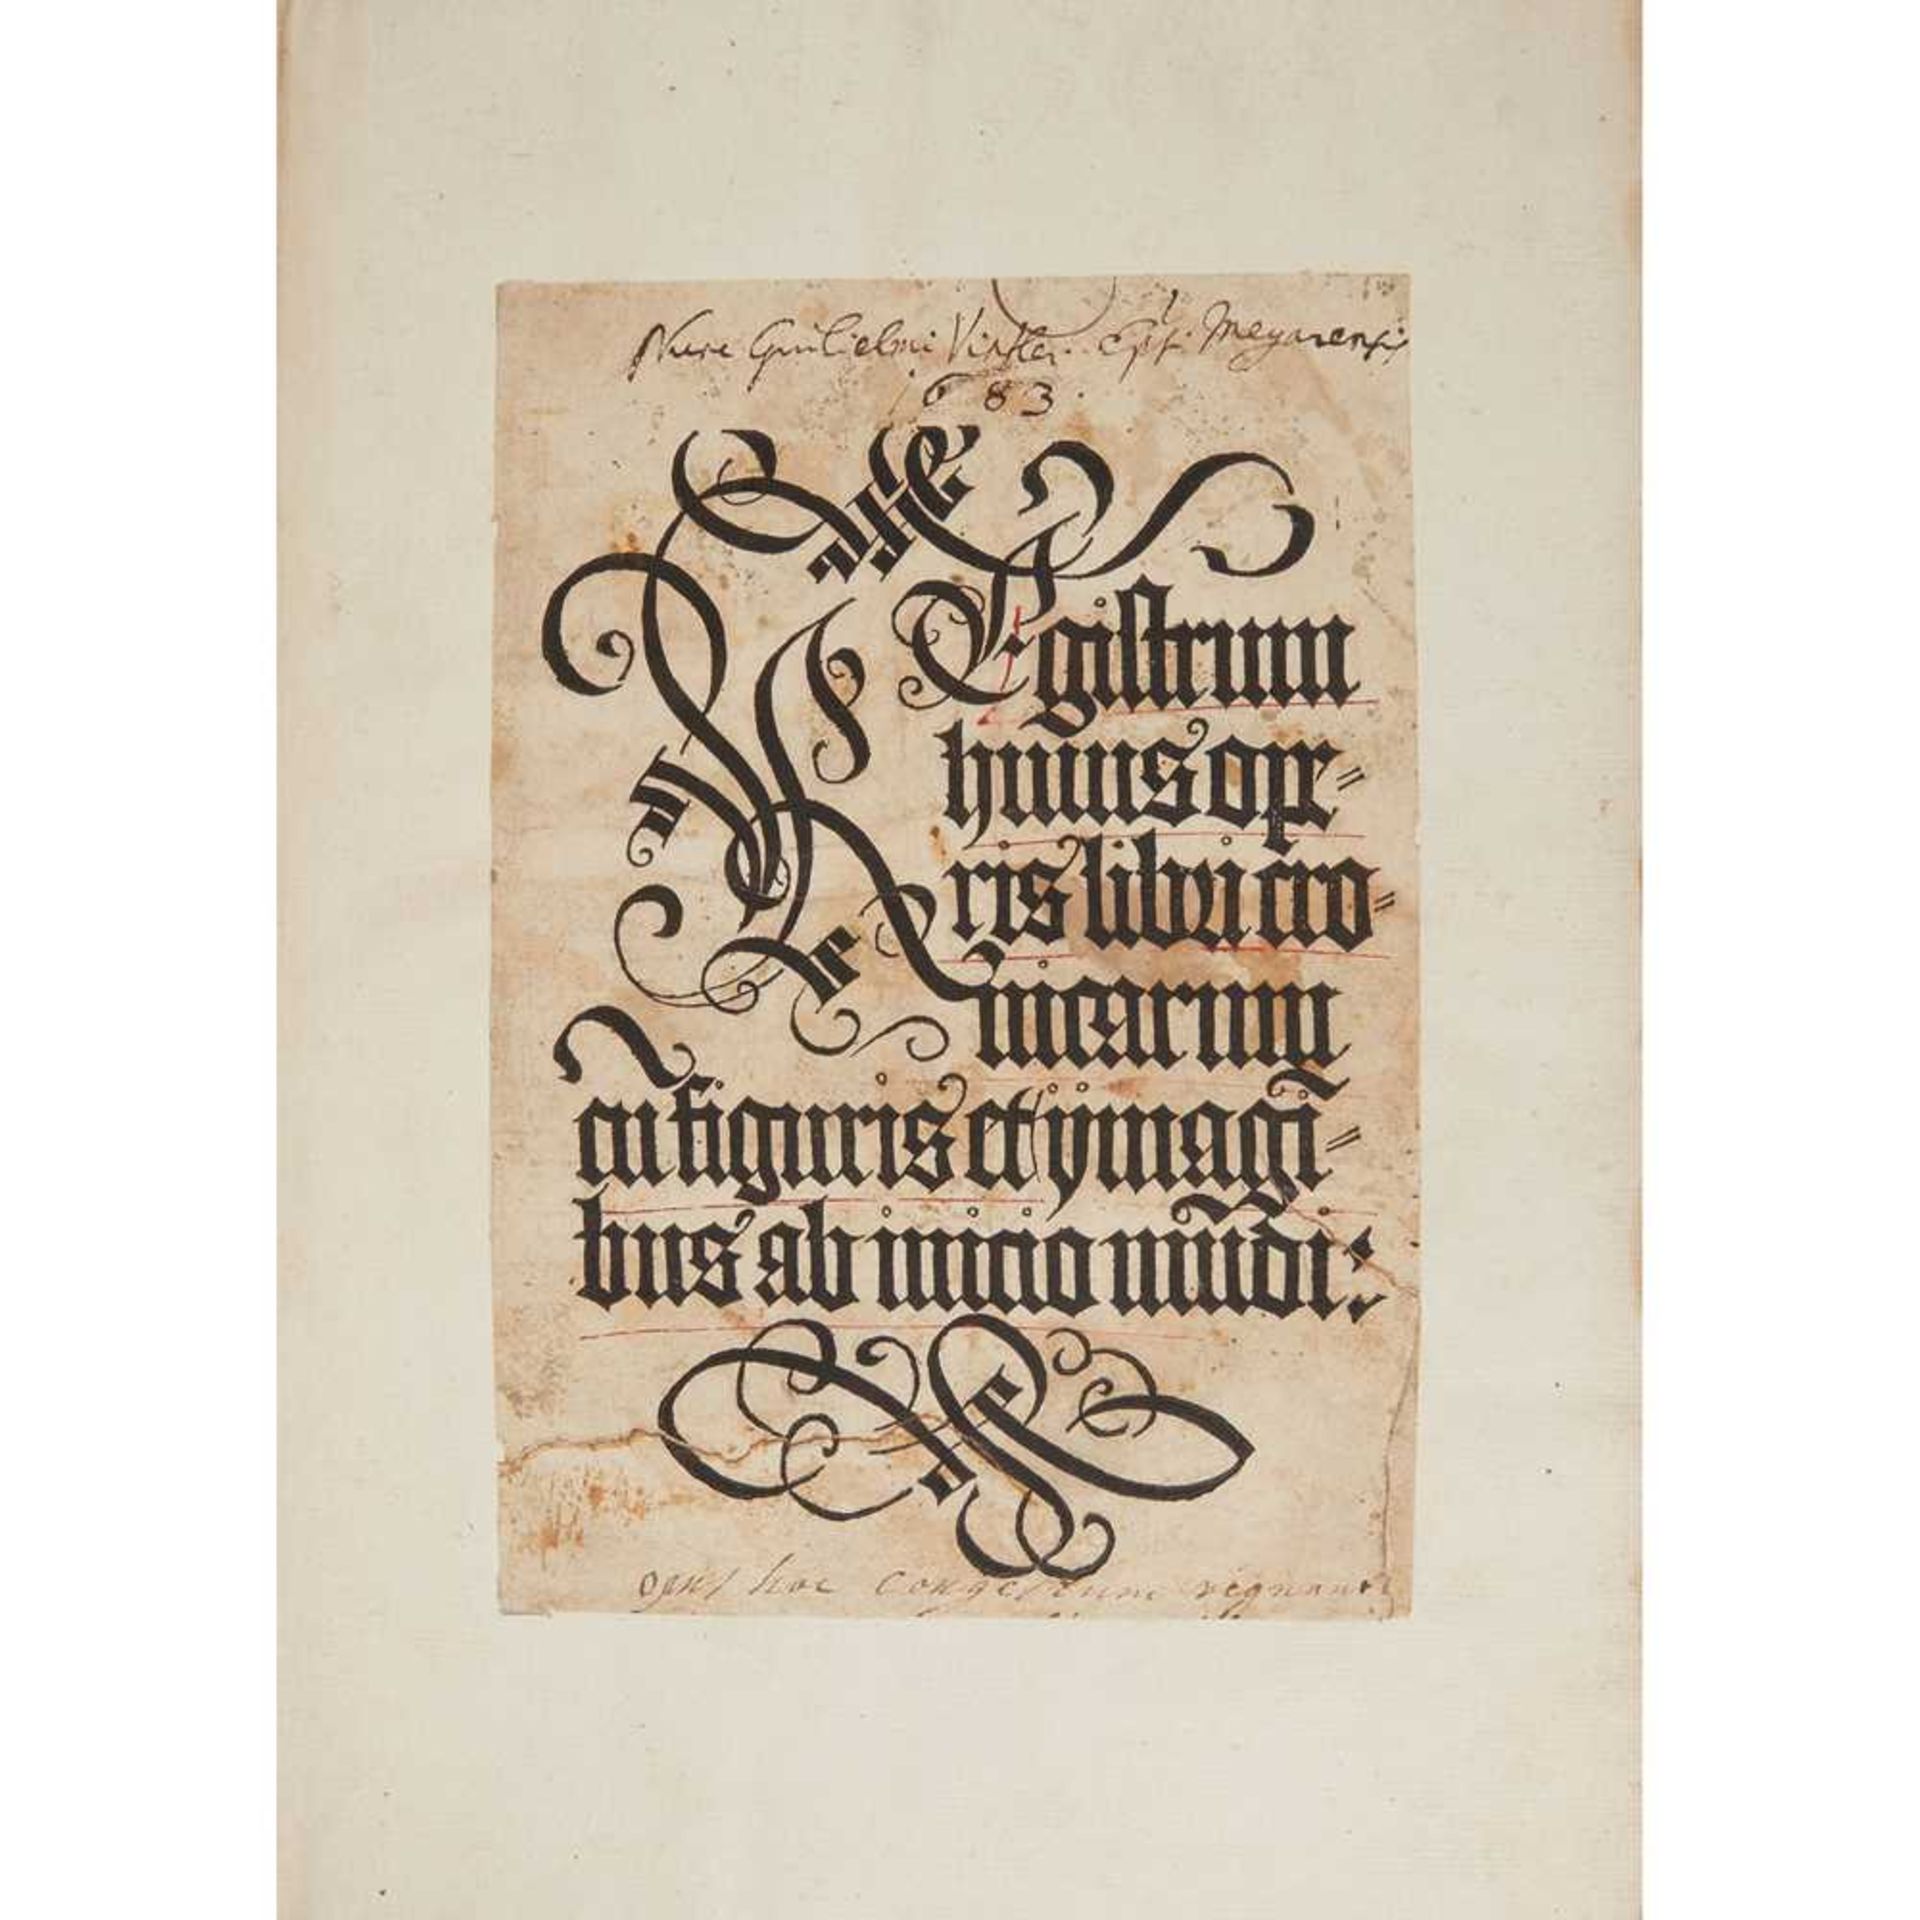 Nunc Guilielmi Epi. Megarensis
1683.
REgistrum
huius ope=
ris libri cro=
nicarum
cū figuris et ijmagi=
bus ab inicio mūdi:
opus hoc congestum regnant